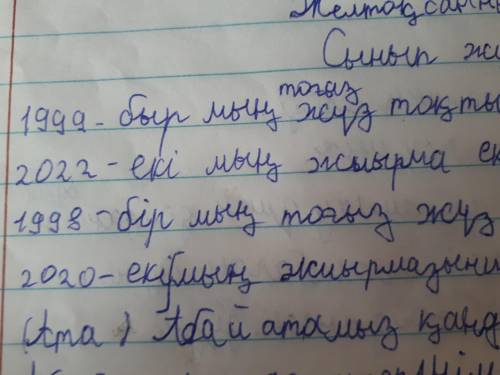 Желтоқсанны
Сынып жұ
тоғыз
1999- быр мың жүз тоқты
2022- екі мың жиырма ек
1998- бір мың тоғыз жүз
2020- екі мың жиырмазыни
(Ата) Абай атамыз қанд